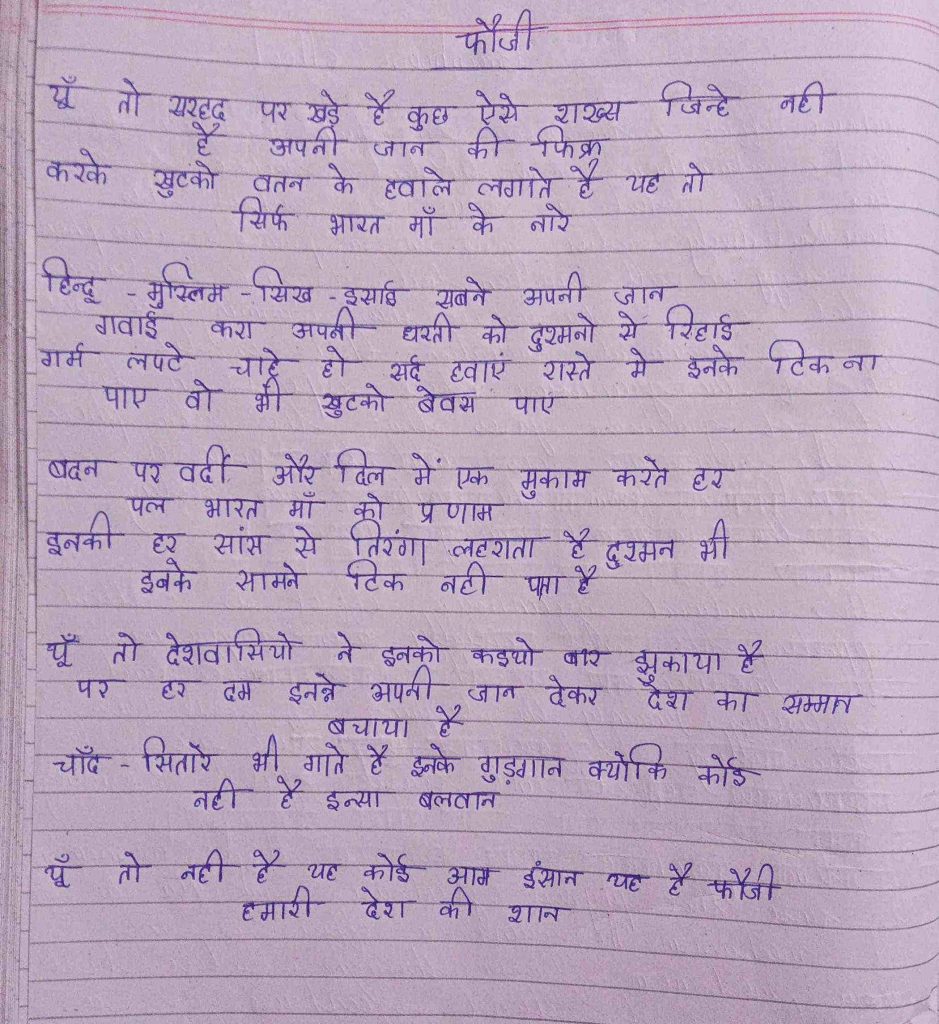 फौजी
यूँ तो सरहद पर खड़े है कुछ ऐसे शख्स जिन्हे नही
है अपनी जान की फिक्र
करके खुदको वतन के हवाले लगाते है यह तो
सिर्फ भारत माँ के नारे
हिन्दू - मुस्लिम - सिख - इसाई सबने अपनी जान
गवाई करा अपनी धरती को दुश्मनो से रिहाई
गर्म लपटे चाहे हो सर्द हवाएं रास्ते मे इनके टिक ना
पाए वो भी खुदको बेबस पाए
बदन पर वर्दी और दिल में एक मुकाम करते हर
पल भारत माँ को प्रणाम
इनकी हर सांस से तिरंगा लहराता है दुश्मन भी
इनके सामने टिक नही पाता है
यूँ तो देशवासियो ने इनको कइयो बार झुकाया है
पर हर दम इनने अपनी जान देकर देश का सम्मान
बचाया है
चाँद - सितारे भी गाते है इनके गुड़गान क्योकि कोई
नही है इन्सा बलवान
यूँ तो नही है यह कोई आम इंसान यह है फौजी
हमारी देश की शान